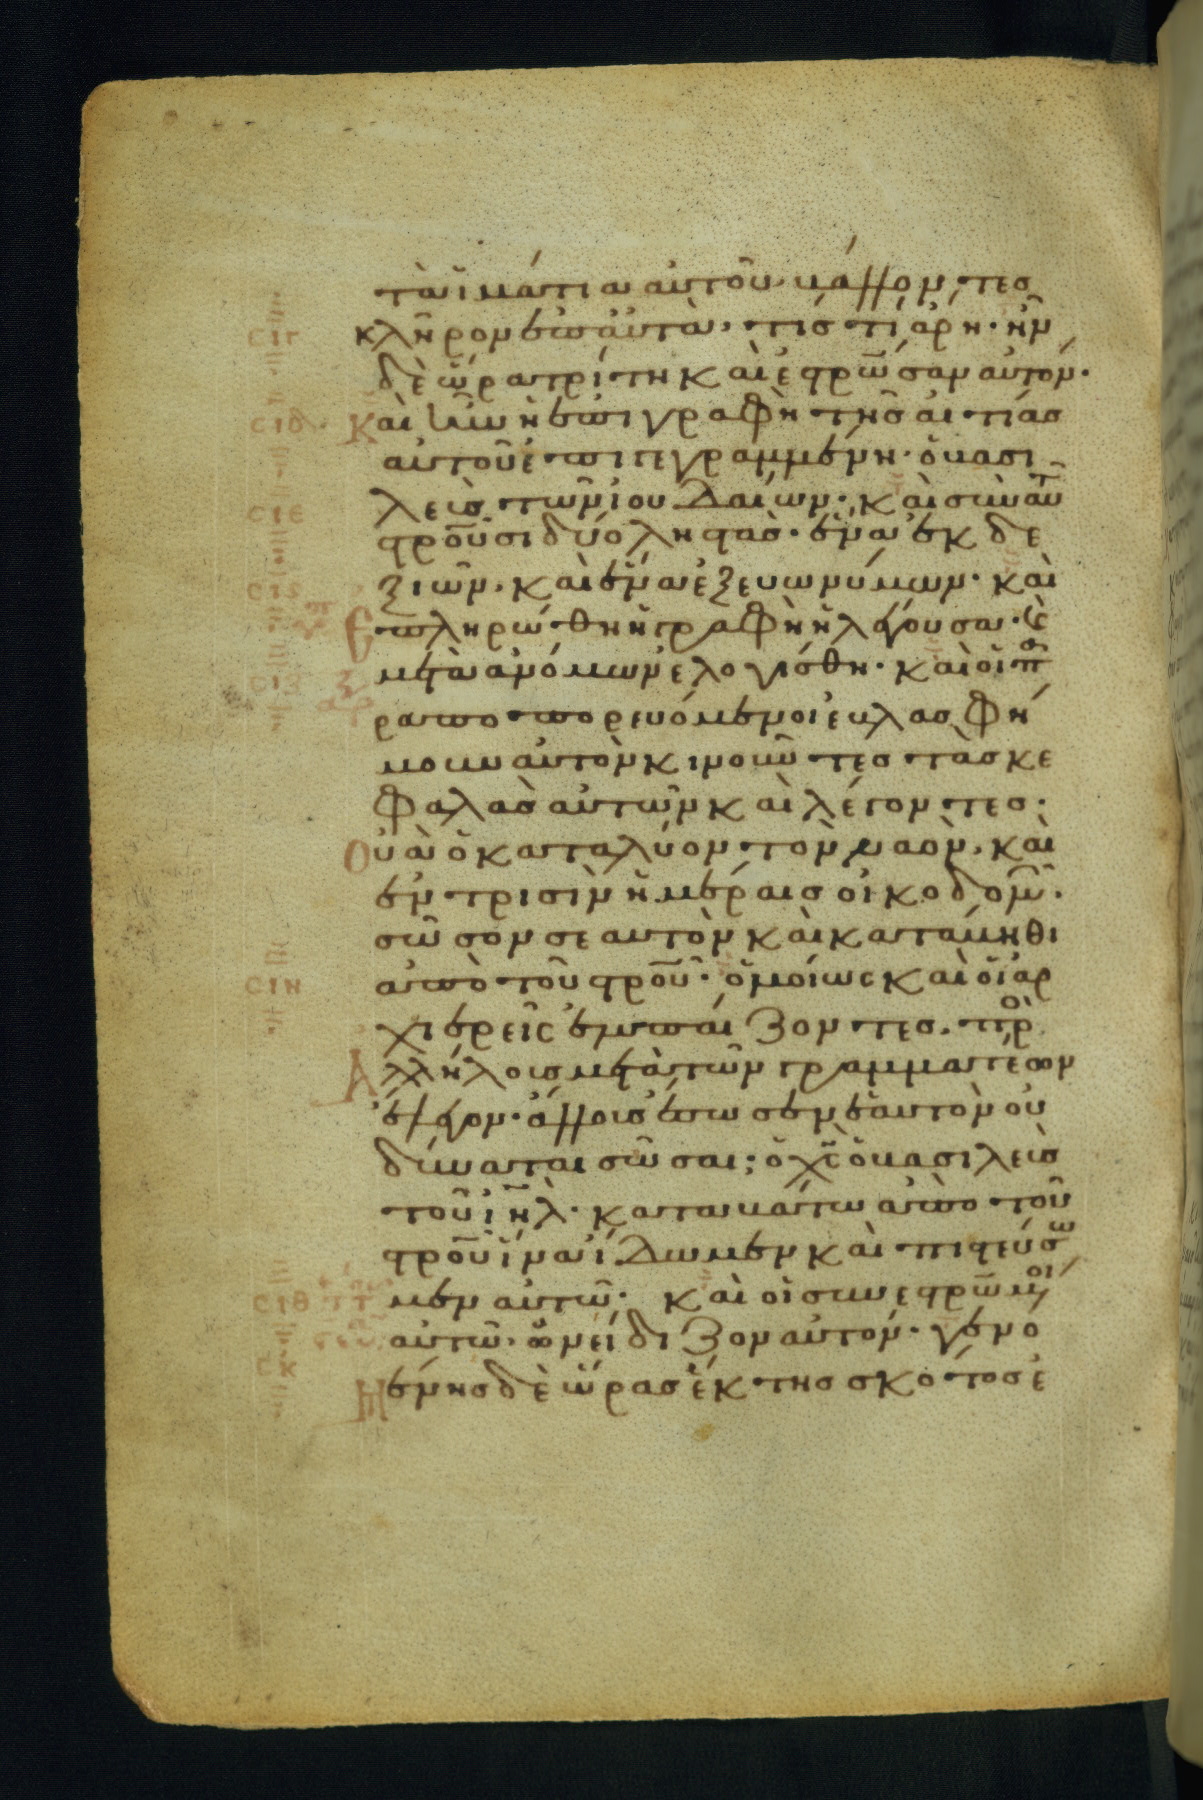 τὰ ἱμάτια αὐτοῦ· βάλλοντες
κλῆρον ἐπ' αὐτὰ, τίς τί ἄρη. ἦν
δὲ ὥρα τρίτη καὶ ἐστρω̅σαν αὐτόν.
Καὶ ἦν ἡ ἐπιγραφὴ τῆς αἰτίας
αὐτοῦ ἐπιγεγραμμένη. ὁ βασι
λεὺς τῶν ἰουδαίων. καὶ σὺν αὐτῶ
στρο̅υσι δύο ληστὰς. ἕνα ἐκ δε
ξιῶν, καὶ ἕνα ἐξ ευωνύμων. καὶ
Ἐπληρώθη ἡ γραφὴ ἡ λέγουσα. ϗ
μετὰ ἀνόμων ελογίσθη. καὶ οἱ π
ραποπορευόμενοι ἐβλασφή
μουν αὐτὸν κινοῦντες τὰς κε
φαλὰς αὐτῶν καὶ λέγοντες.
Οὐὰ ὁ καταλύον τὸν ναὸν, καὶ
ἐν τρισὶν ἡμέραις οἰκοδομῶν.
σῶσον σεαυτὸν καὶ κατάβηθι
ἀπὸ τοῦ στρο̅υ. ὁμοίως καὶ οἱ ἀρ
χιερεῖς ἐμπαίζοντες πρὸ
Ἀλλήλοις μετὰ τῶν γραμματέων
ἔλεγον. ἄλλους ἔσωσεν ἑαυτὸν οὐ
δύναται σῶσαι; ὁ χ̅ς̅ ὁ βασιλεὺς
τοῦ ι̅η̅λ̅. καταβάτω ἀπὸ τοῦ
στρο̅υ ἵνα ἴδωμεν καὶ πιστεύσω
μεν αὐτῶ. καὶ οἱ συνεστρω̅μένοι
αὐτῶ, ὠνείδιζον αὐτόν. γενο
μένης δὲ ὥρας ἕκτης σκότος ἐ
σιγ
σιδ
σιε
σις
σιη
σιθ
σκ